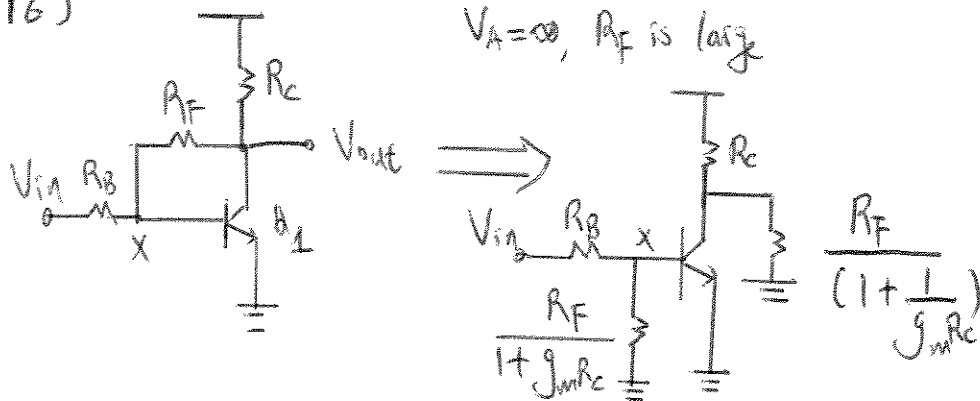 16)
V_A=∞, R_F is larg
R_C
R_F
V_out
V_in
R_B
X
Q_1
R_C
V_in
R_B
X
R_F / (1 + g_m R_C)
R_F / (1 + 1 / (g_m R_C))